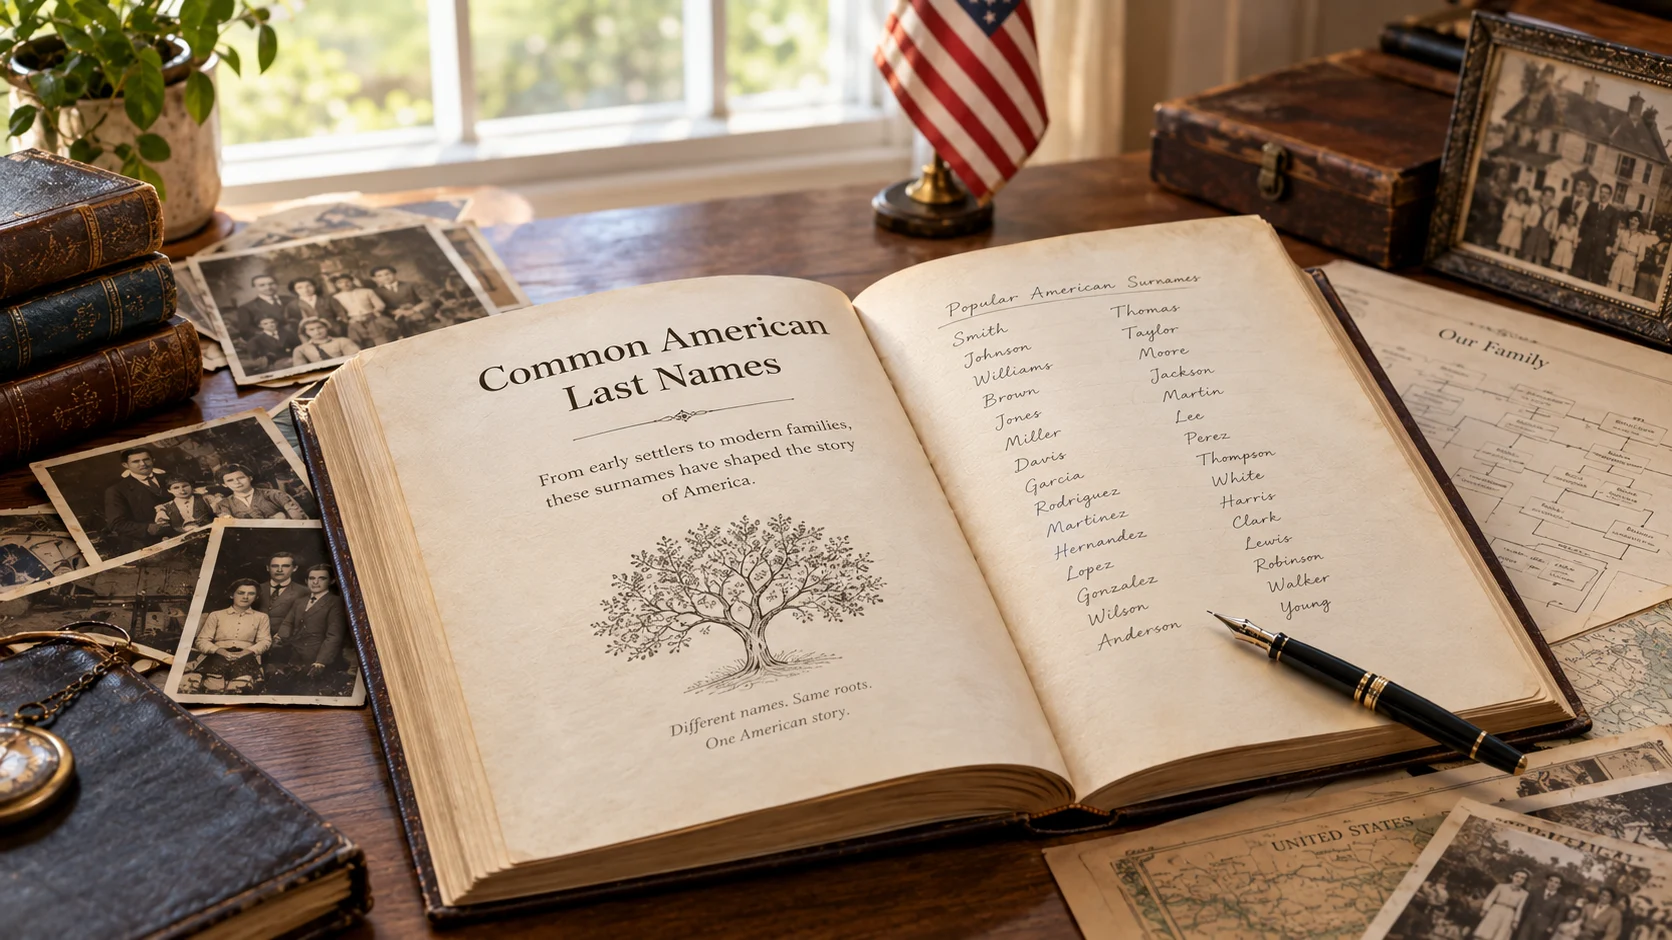 Common American
Last Names
From early settlers to modern families,
these surnames have shaped the story
of America.
Different names. Same roots.
One American story.
Popular American Surnames
Smith
Johnson
Williams
Brown
Jones
Miller
Davis
Garcia
Rodriguez
Martinez
Hernandez
Lopez
Gonzalez
Wilson
Anderson
Thomas
Taylor
Moore
Jackson
Martin
Lee
Perez
Thompson
White
Harris
Clark
Lewis
Robinson
Walker
Young
Our Family
UNITED STATES